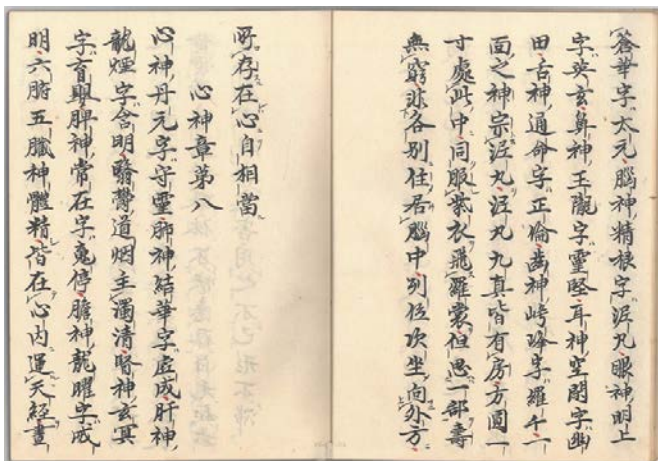 蒼華字太元腦神精根字泥丸眼神明上
字英玄鼻神王隴字靈堅耳神空閑字幽
田舌神通命字正倫齒神崿鋒字羅千一
面之神宗泥丸泥丸九真皆有房方圓一
寸處此中同服紫衣飛羅裳但思一部壽
無窮非各別住居腦中列位次坐向外方
所存在心自相當
心神章第八
心神丹元字守靈肺神結華字虛成肝神
龍煙字含明翳鬱道烟主濁清腎神玄冥
字育嬰脾神常在字魂停膽神龍曜字威
明六腑五臟神體精皆在心內運天經晝